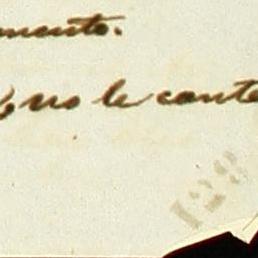 mento.
no le conte
128